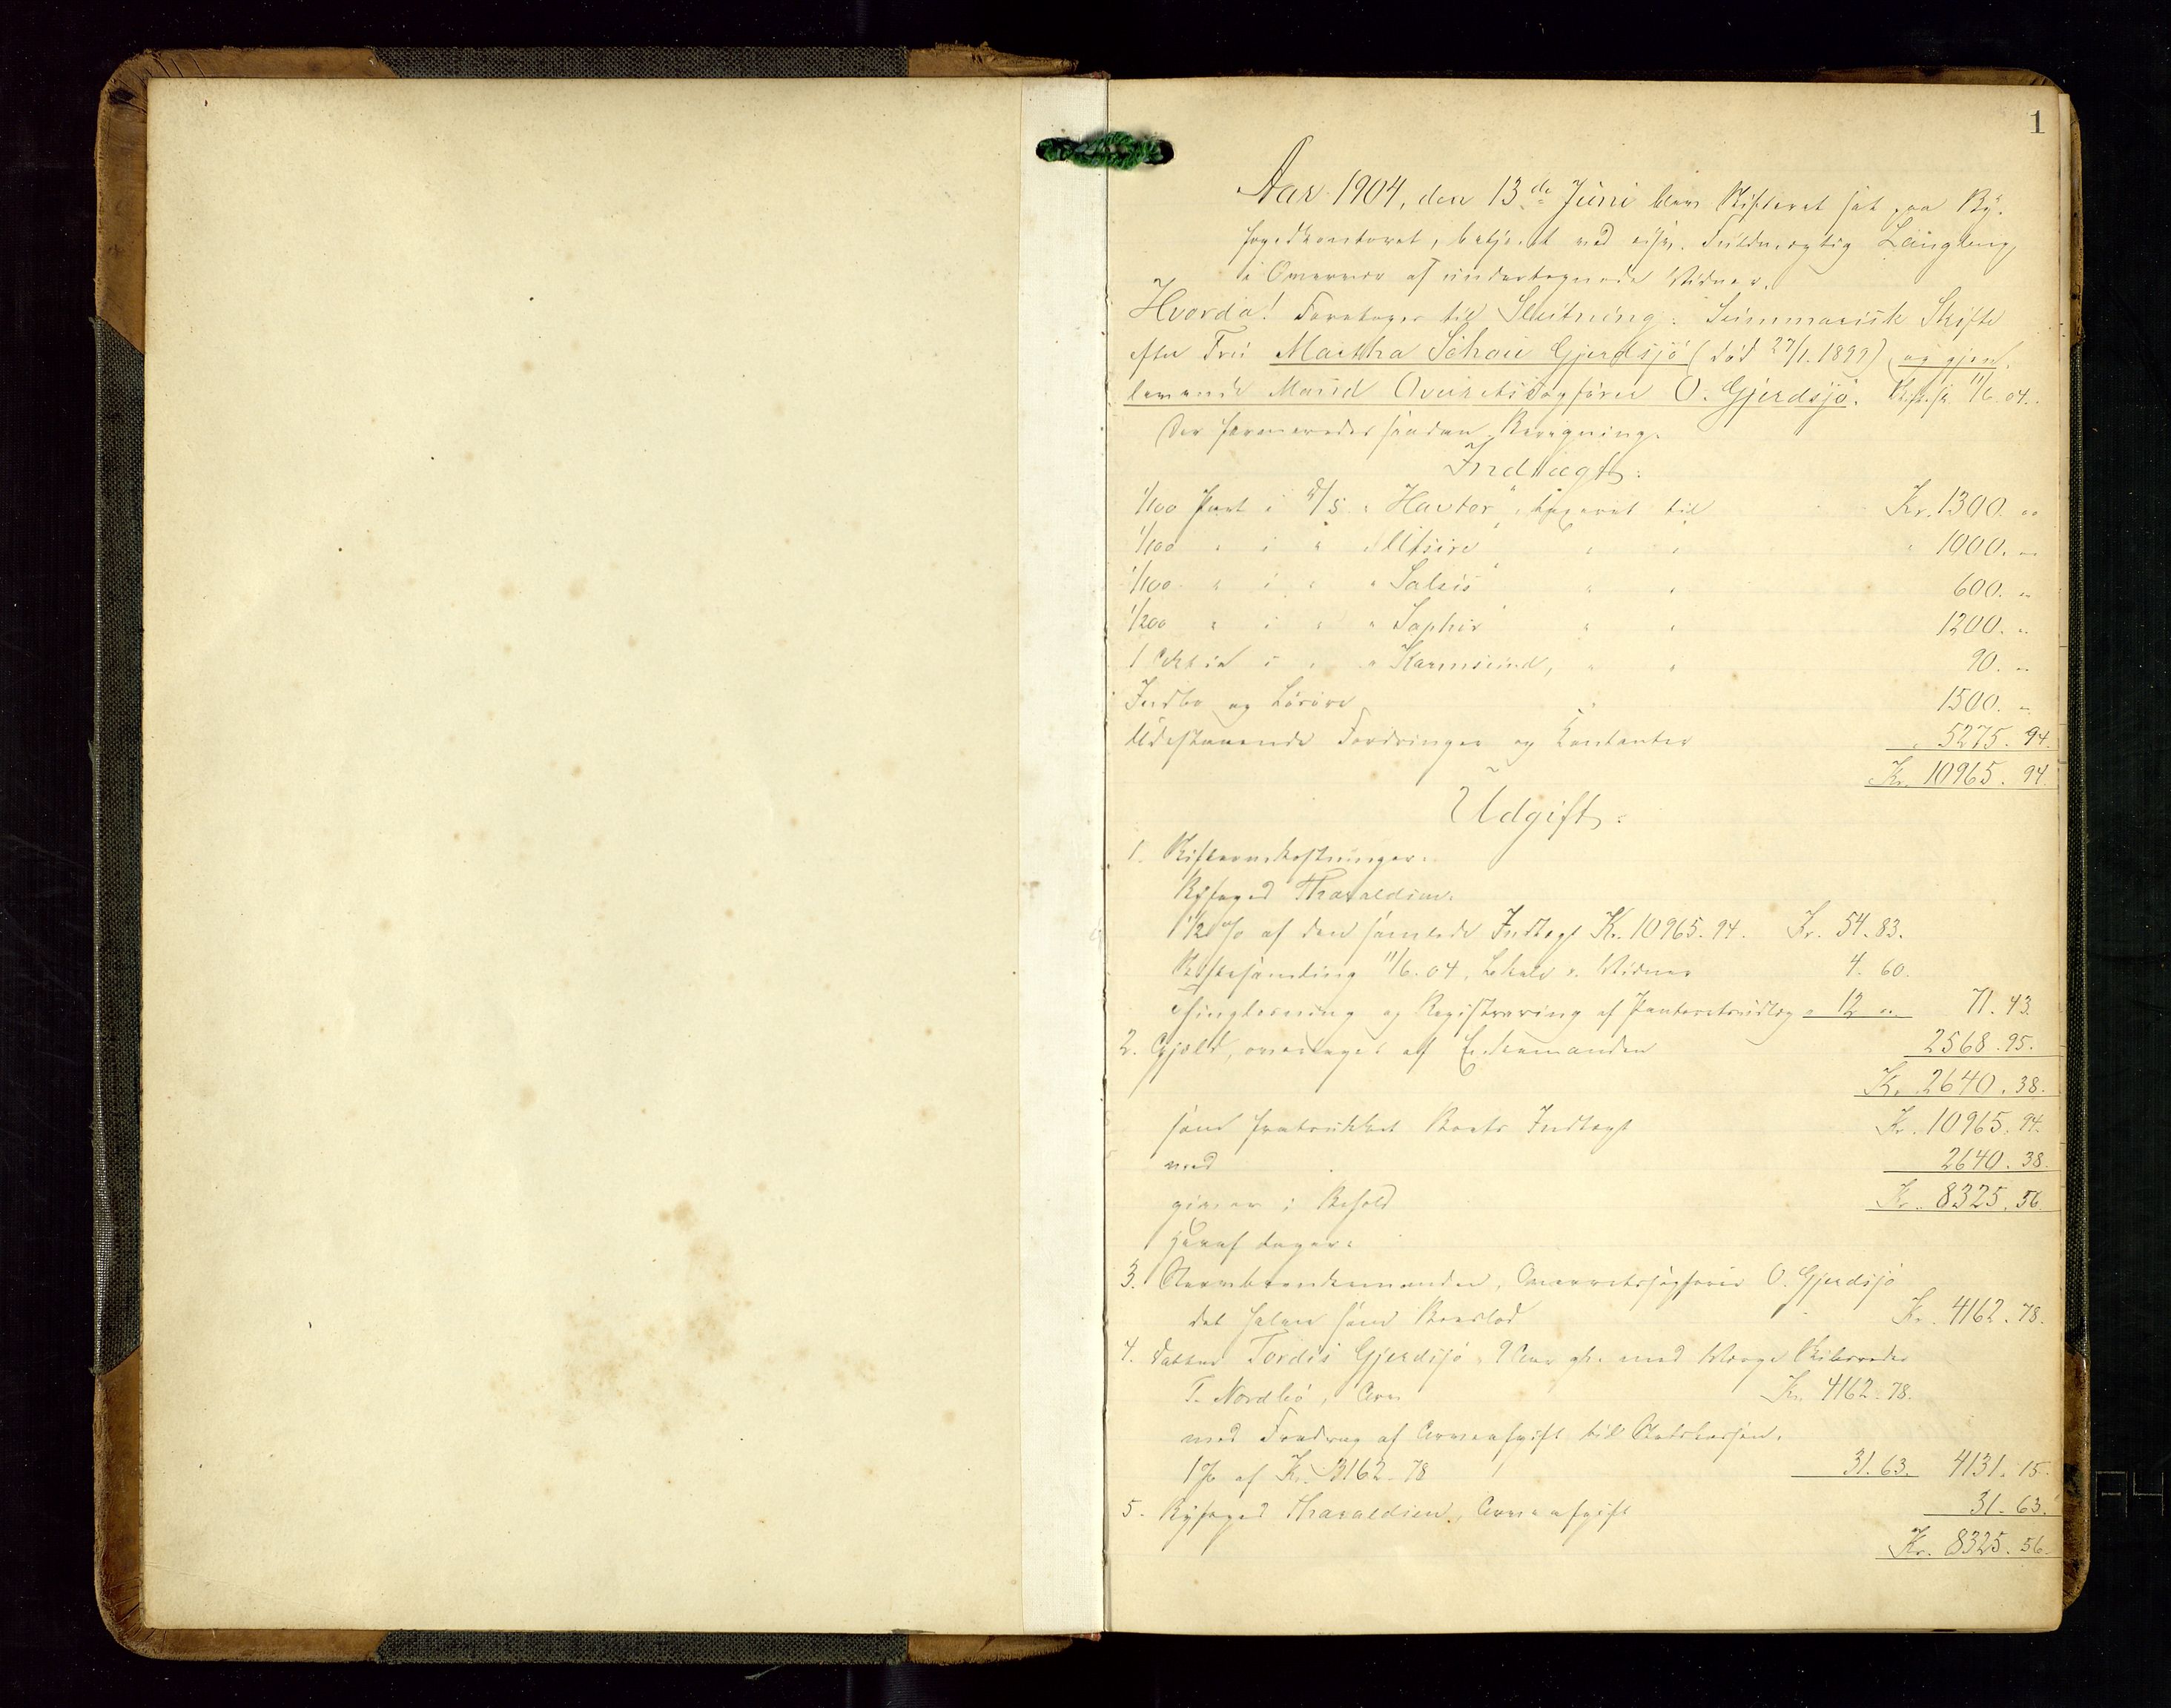 1
Aar 1904, den 13de Juni blev Skifteret sat paa By-
fogedkontoret, betjent ved Fuldmægtig
i Overvær af undertegnede Vidner.
Hvorda! Foretoges til Slutning: Summarisk Skifte
efter Fru Martha Schou Gjerdsjø (død 27/1. 1899) og gjen-
levende Mand Overretssagfører O. Gjerdsjø. 11/6. 04.
Der formeredes saadan Beregning.
Indtægt:
1/100 Part i D/S "Havtor", taxeret til Kr. 1300. "
1/100 " i " "Utsire" " " " 1000. "
1/100 " i " "Salvis" " " 600. "
1/200 " i " "Saphir" " " 1200. "
1 Aktie i " "Karmsund", " " 90. "
Indbo og Løsøre 1500. "
Udestaaende Fordringer og Kontanter " 5275. 94.
Kr. 10965. 94.
Udgift:
1. Skifteomkostninger:
Byfoged Tharaldsen.
1/2 % af den samlede Indtægt Kr. 10965.94. Kr. 54.83.
Skiftesamling 11/6. 04, Lokale o. Vidner 4. 60.
Thinglæsning og Registrering af Panteretsudlæg " 12 " 71. 43.
2. Gjæld, overtaget af Enkemanden 2568. 95.
Kr. 2640. 38.
som fratrukket Boets Indtægt Kr. 10965. 94.
med 2640. 38.
giver i Behold Kr. 8325. 56.
Heraf tager:
3. Overretssagfører O. Gjerdsjø
det halve som Boeslod Kr. 4162. 78.
4. Datter Tordis Gjerdsjø, 9 Aar gl. med Værge Skibsreder
T. Nordbø, Arv Kr. 4162. 78.
med Fradrag af Arveafgift til Statskassen.
1 % af Kr. 3162. 78 31. 63. 4131. 15.
5. Byfoged Tharaldsen, Arveafgift 31. 63.
Kr. 8325. 56.